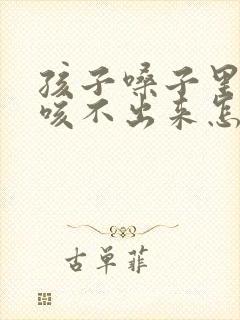 孩子嗓子里
咳不出来怎
古单菲